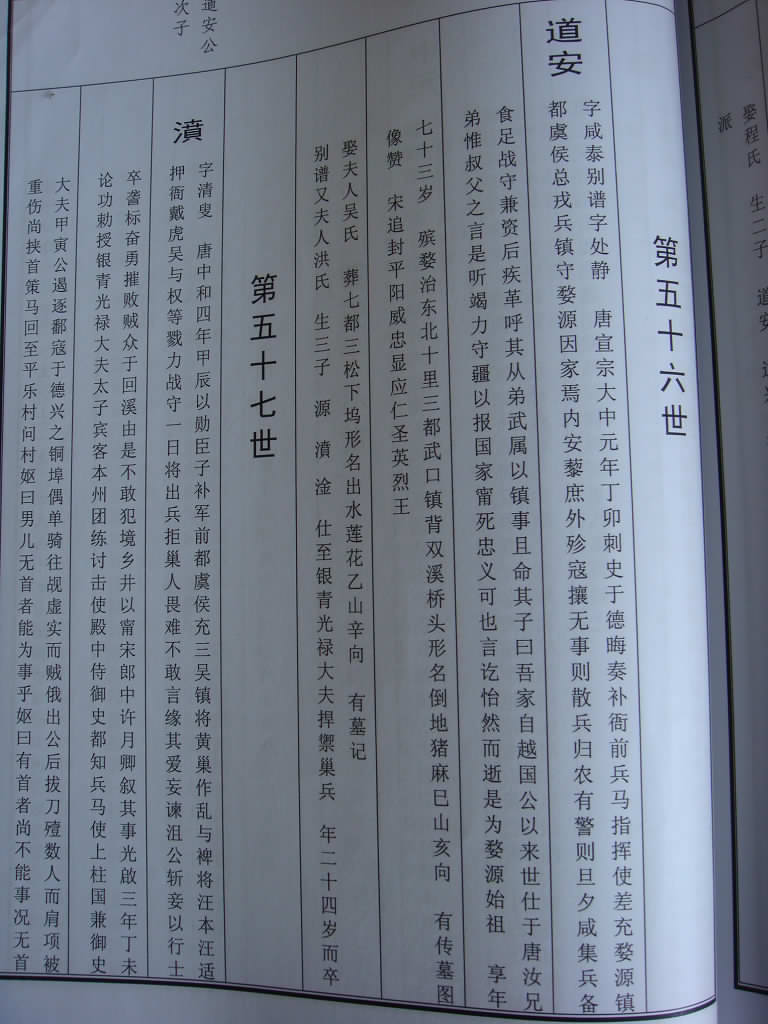 娶程氏 生二子 道安
派
第五十六世
道安
字咸泰别谱字处静 唐宣宗大中元年丁卯刺史于德晦奏补衙前兵马指挥使差充婺源镇
都虞侯总戎兵镇守婺源因家焉内安藜庶外殄寇攘无事则散兵归农有警则旦夕咸集兵备
食足战守兼资后疾革呼其从弟武属以镇事且命其子曰吾家自越国公以来世仕于唐汝兄
弟惟叔父之言是听竭力守疆以报国家甯死忠义可也言讫怡然而逝是为婺源始祖 享年
七十三岁 殡婺治东北十里三都武口镇背双溪桥头形名倒地猪麻巳山亥向 有传墓图
像赞 宋追封平阳威忠显应仁圣英烈王
娶夫人吴氏 葬七都三松下坞形名出水莲花乙山辛向 有墓记
别谱又夫人洪氏 生三子 源 濆 淦 仕至银青光禄大夫捍禦巢兵 年二十四岁而卒
第五十七世
濆
字清叟 唐中和四年甲辰以勋臣子补军前都虞侯充三吴镇将黄巢作乱与裨将汪本汪适
押衙戴虎吴与权等戮力战守一日将出兵拒巢人畏难不敢言缘其爱妄谏沮公斩妾以行士
卒詟标奋勇摧败贼众于回溪由是不敢犯境乡井以甯宋郎中许月卿叙其事光啟三年丁未
论功勅授银青光禄大夫太子宾客本州团练讨击使殿中侍御史都知兵马使上柱国兼御史
大夫甲寅公遏逐鄱寇于德兴之铜埠偶单骑往觇虚实而贼俄出公后拔刀殪数人而肩项被
重伤尚挟首策马回至平乐村问村妪曰男儿无首者能为事乎妪曰有首者尚不能事况无首
道安公
次子